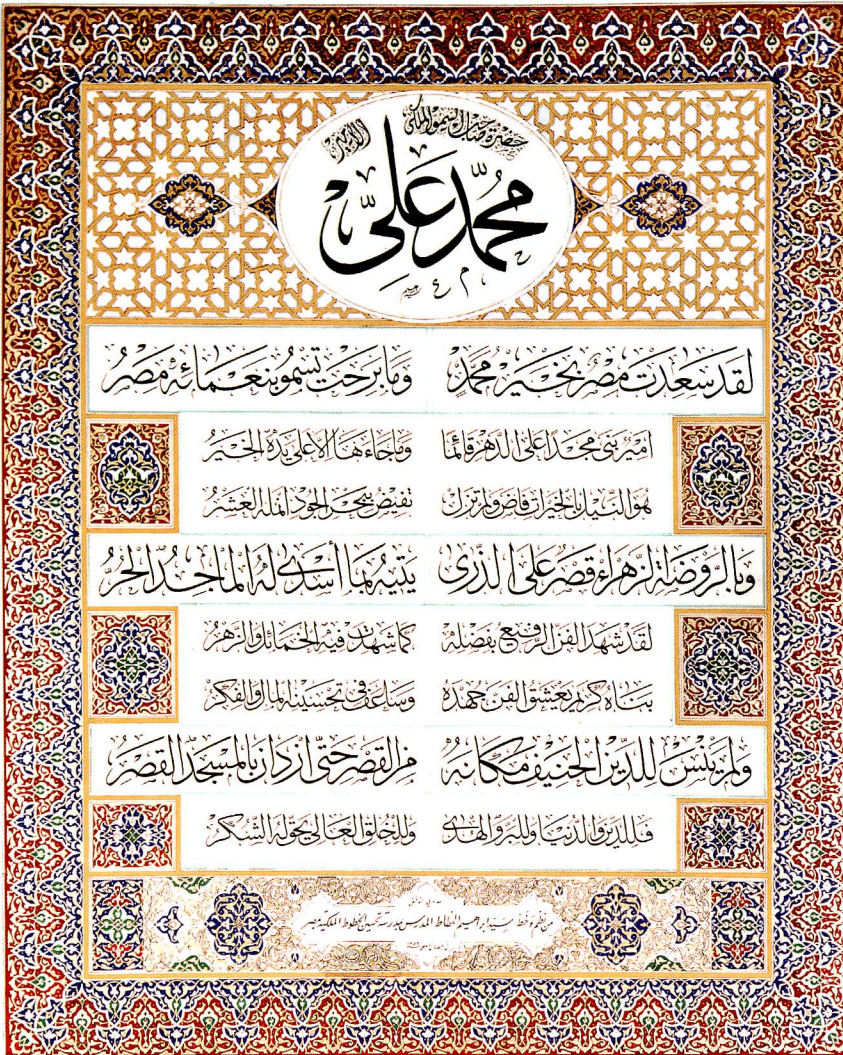 حضرة صاحب السمو الملكي الأمير
محمد علي
لقد سعدت مصر بخير محمد وما برحت تسمو بنعمائه مصر
أمير بنى مجدا على الدهر قائما وما جاءها إلا على يده الخير
هو النيل بالخيرات فاض ولم تزل تفيض ببحر الجود أنمله العشر
وبالروضة الزهراء قصر على الذرى يتيه بما أسدى له الماجد الحر
لقد شهد الفن الرفيع بفضله كما شهدت فيه الخمائل والزهر
بناه كريم يعشق الفن جهده وساعف في تحسينه المال والفكر
ولم ينس للدين الحنيف مكانه من القصر حتى ازدان بالمسجد القصر
فللدين والدنيا وللبر والهدى وللخلق العالي يحق له الشكر
من نظم وخط سيد إبراهيم الخطاط المدرس بمدرسة تحسين الخطوط الملكية بمصر